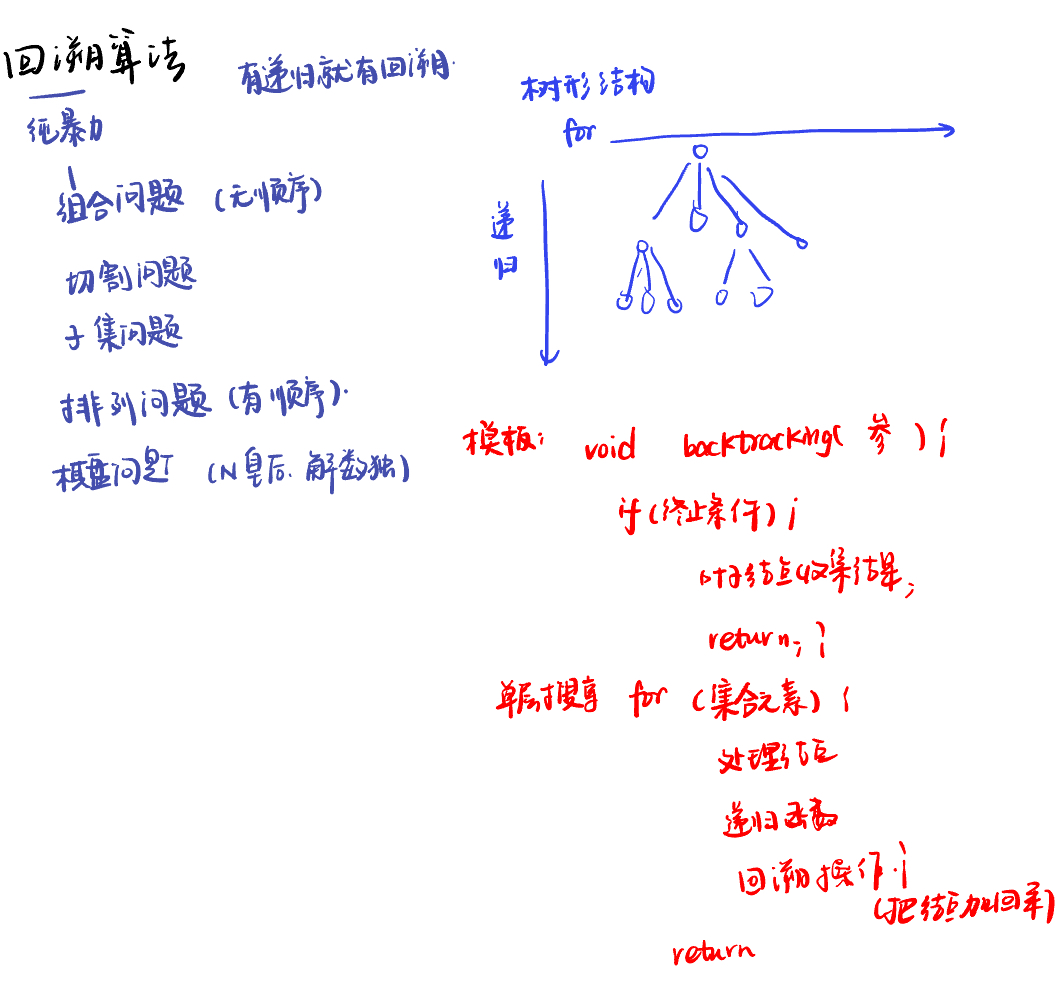 回溯算法
有递归就有回溯.
纯暴力
组合问题 (无顺序)
切割问题
子集问题
排列问题 (有顺序).
棋盘问题 (N皇后. 解数独)
树形结构
for
递
归
模板: void backtracking( 参 ) {
if (终止条件) {
叶子结点收集结果;
return; }
单层搜索 for (集合元素) {
处理结点
递归函数
回溯操作. }
(把结点加回来)
return